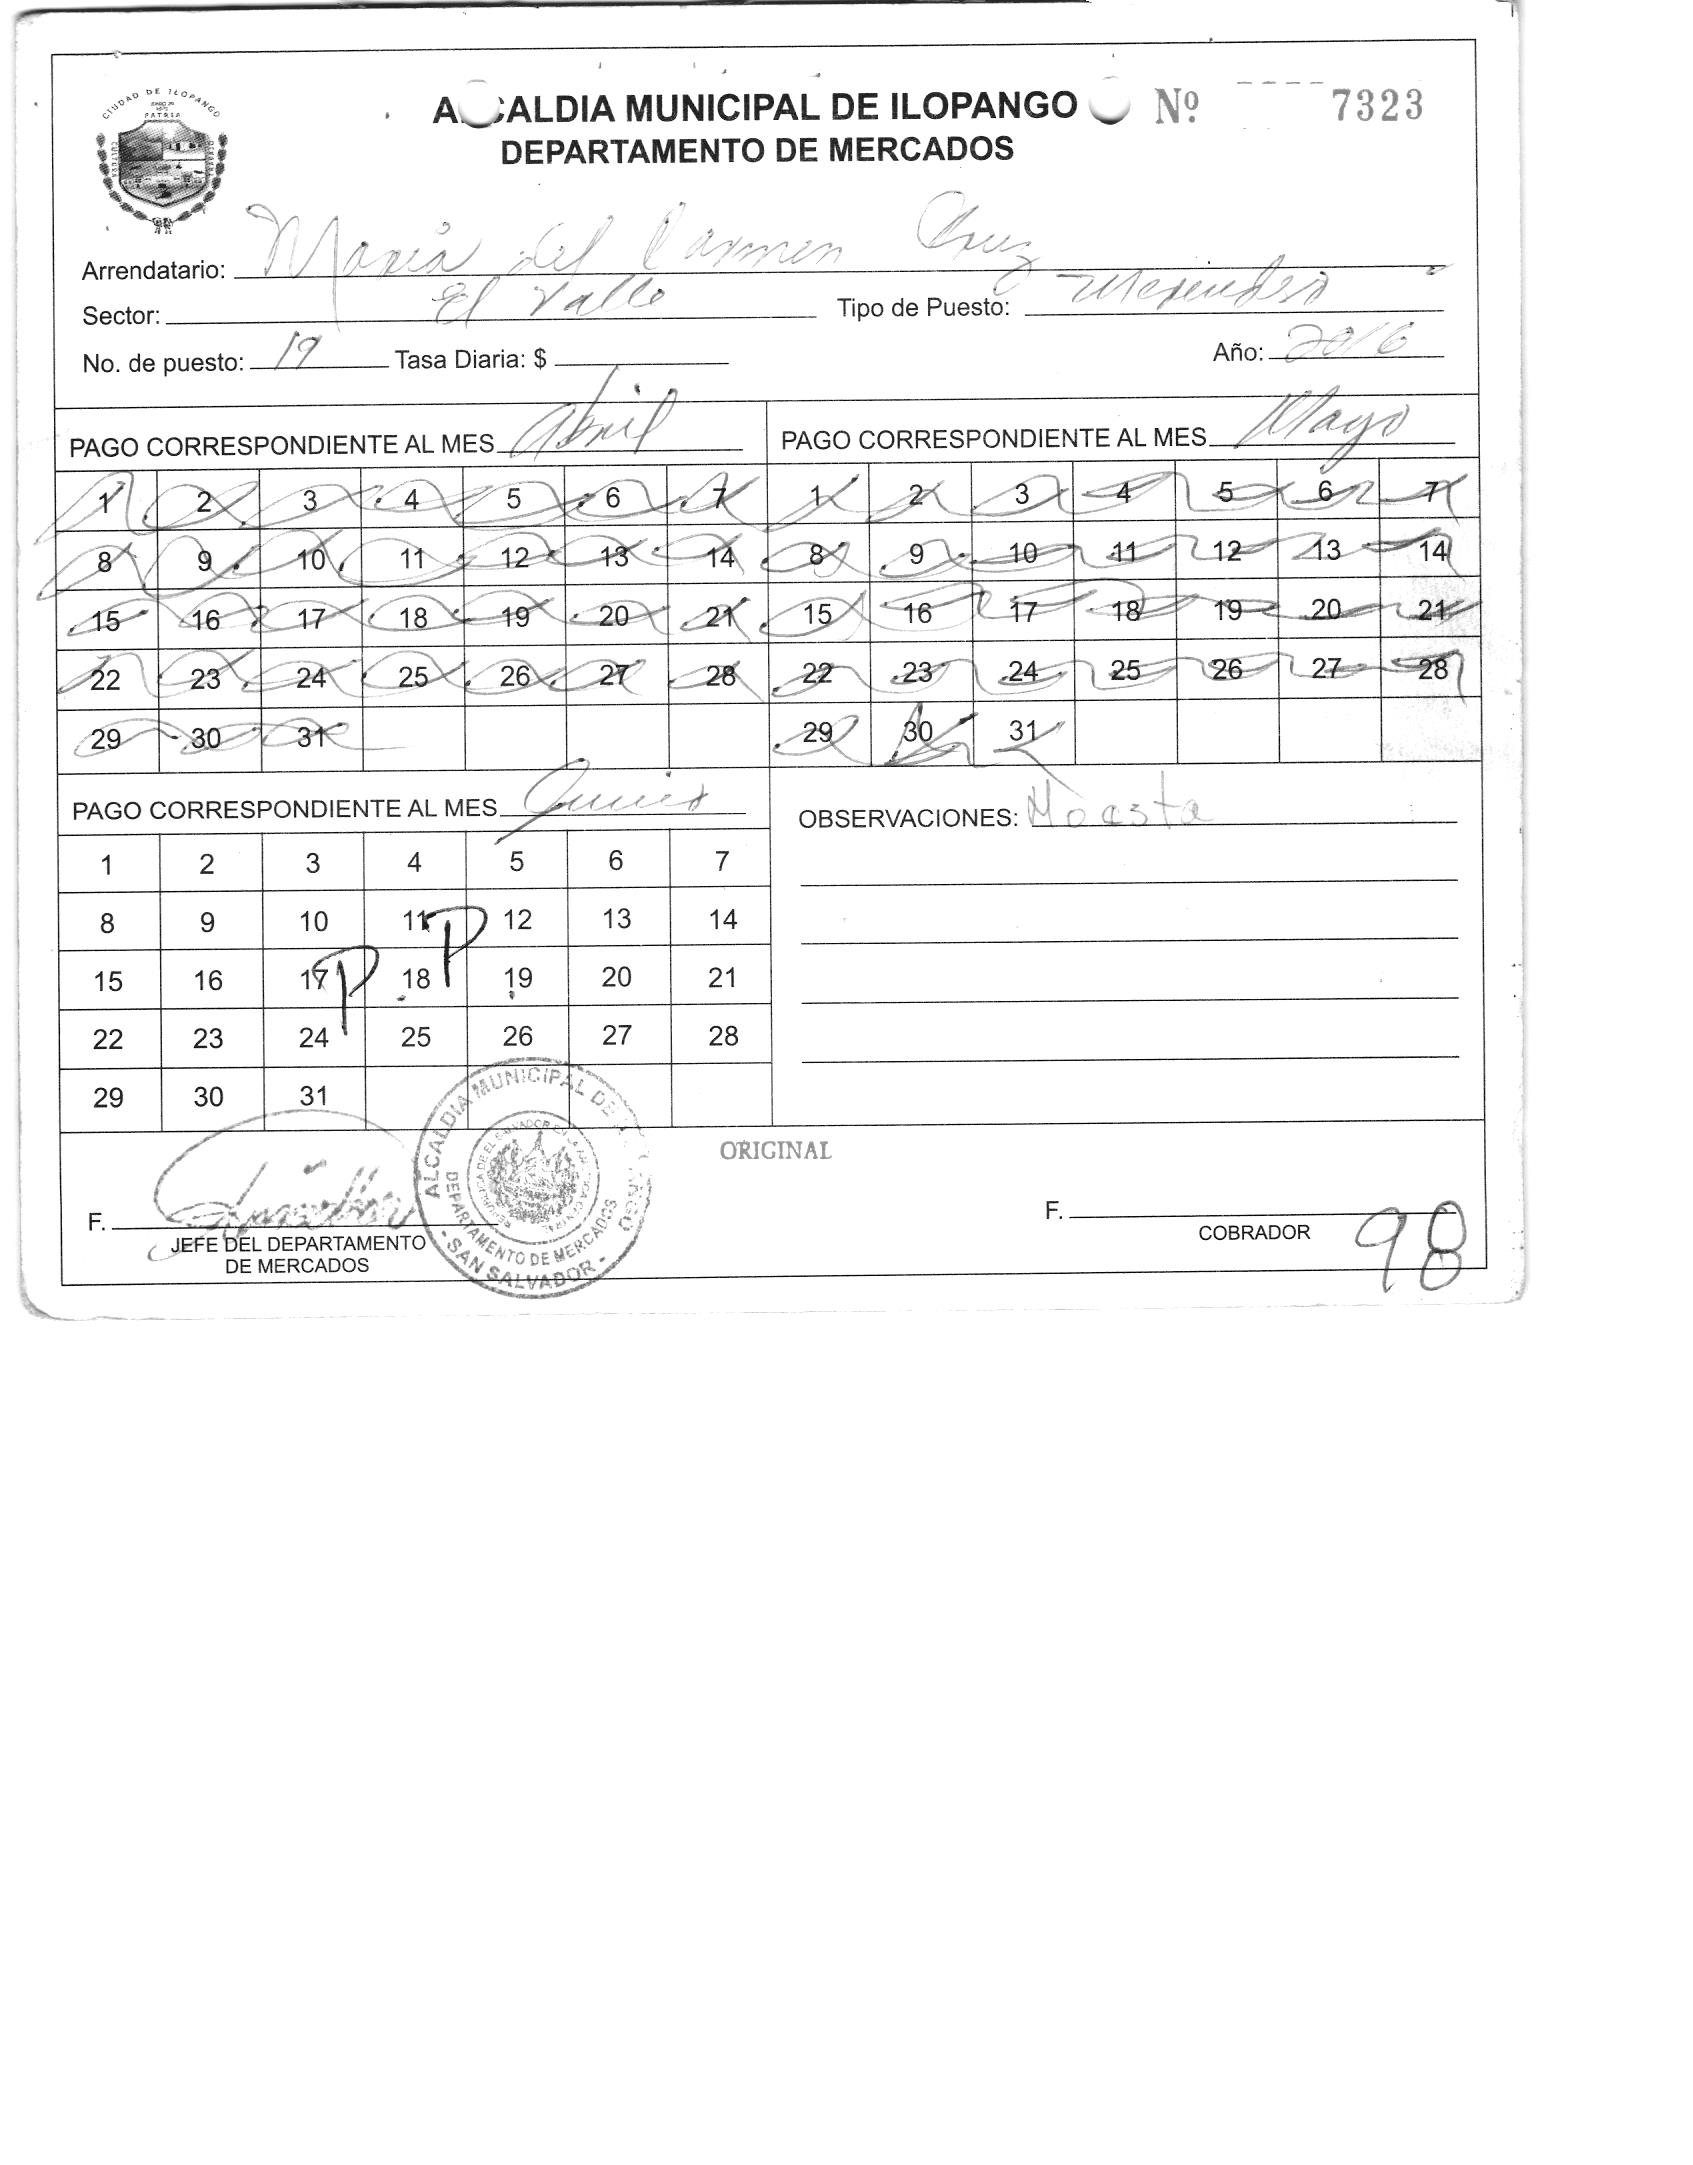 CIUDAD DE ILOPANGO
PATRIA
CULTURA
ALCALDIA MUNICIPAL DE ILOPANGO Nº 7323
DEPARTAMENTO DE MERCADOS
Arrendatario: Maria del Carmen Cruz
Sector: El Valle Tipo de Puesto: Merendero
No. de puesto: 19 Tasa Diaria: $ Año: 2016
PAGO CORRESPONDIENTE AL MES Abril
1 2 3 4 5 6 7
8 9 10 11 12 13 14
15 16 17 18 19 20 21
22 23 24 25 26 27 28
29 30 31
PAGO CORRESPONDIENTE AL MES Mayo
1 2 3 4 5 6 7
8 9 10 11 12 13 14
15 16 17 18 19 20 21
22 23 24 25 26 27 28
29 30 31
PAGO CORRESPONDIENTE AL MES Junio
1 2 3 4 5 6 7
8 9 10 11 P 12 13 14
15 16 17 P 18 19 20 21
22 23 24 25 26 27 28
29 30 31
OBSERVACIONES:
ORIGINAL
F.
JEFE DEL DEPARTAMENTO
DE MERCADOS
ALCALDIA MUNICIPAL DE
DEPARTAMENTO DE MERCADOS
- SAN SALVADOR -
F.
COBRADOR
98